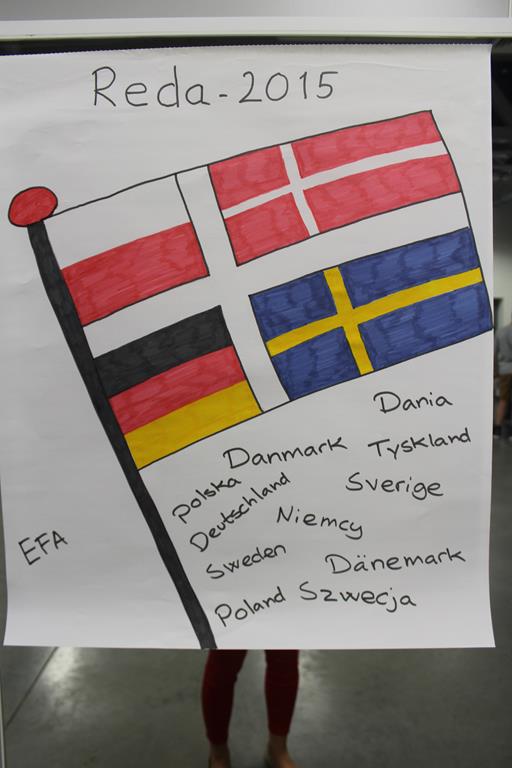 Reda-2015
Dania
Danmark
Tyskland
Polska
Deutschland
Sverige
Niemcy
EFA
Sweden
Dänemark
Poland
Szwecja